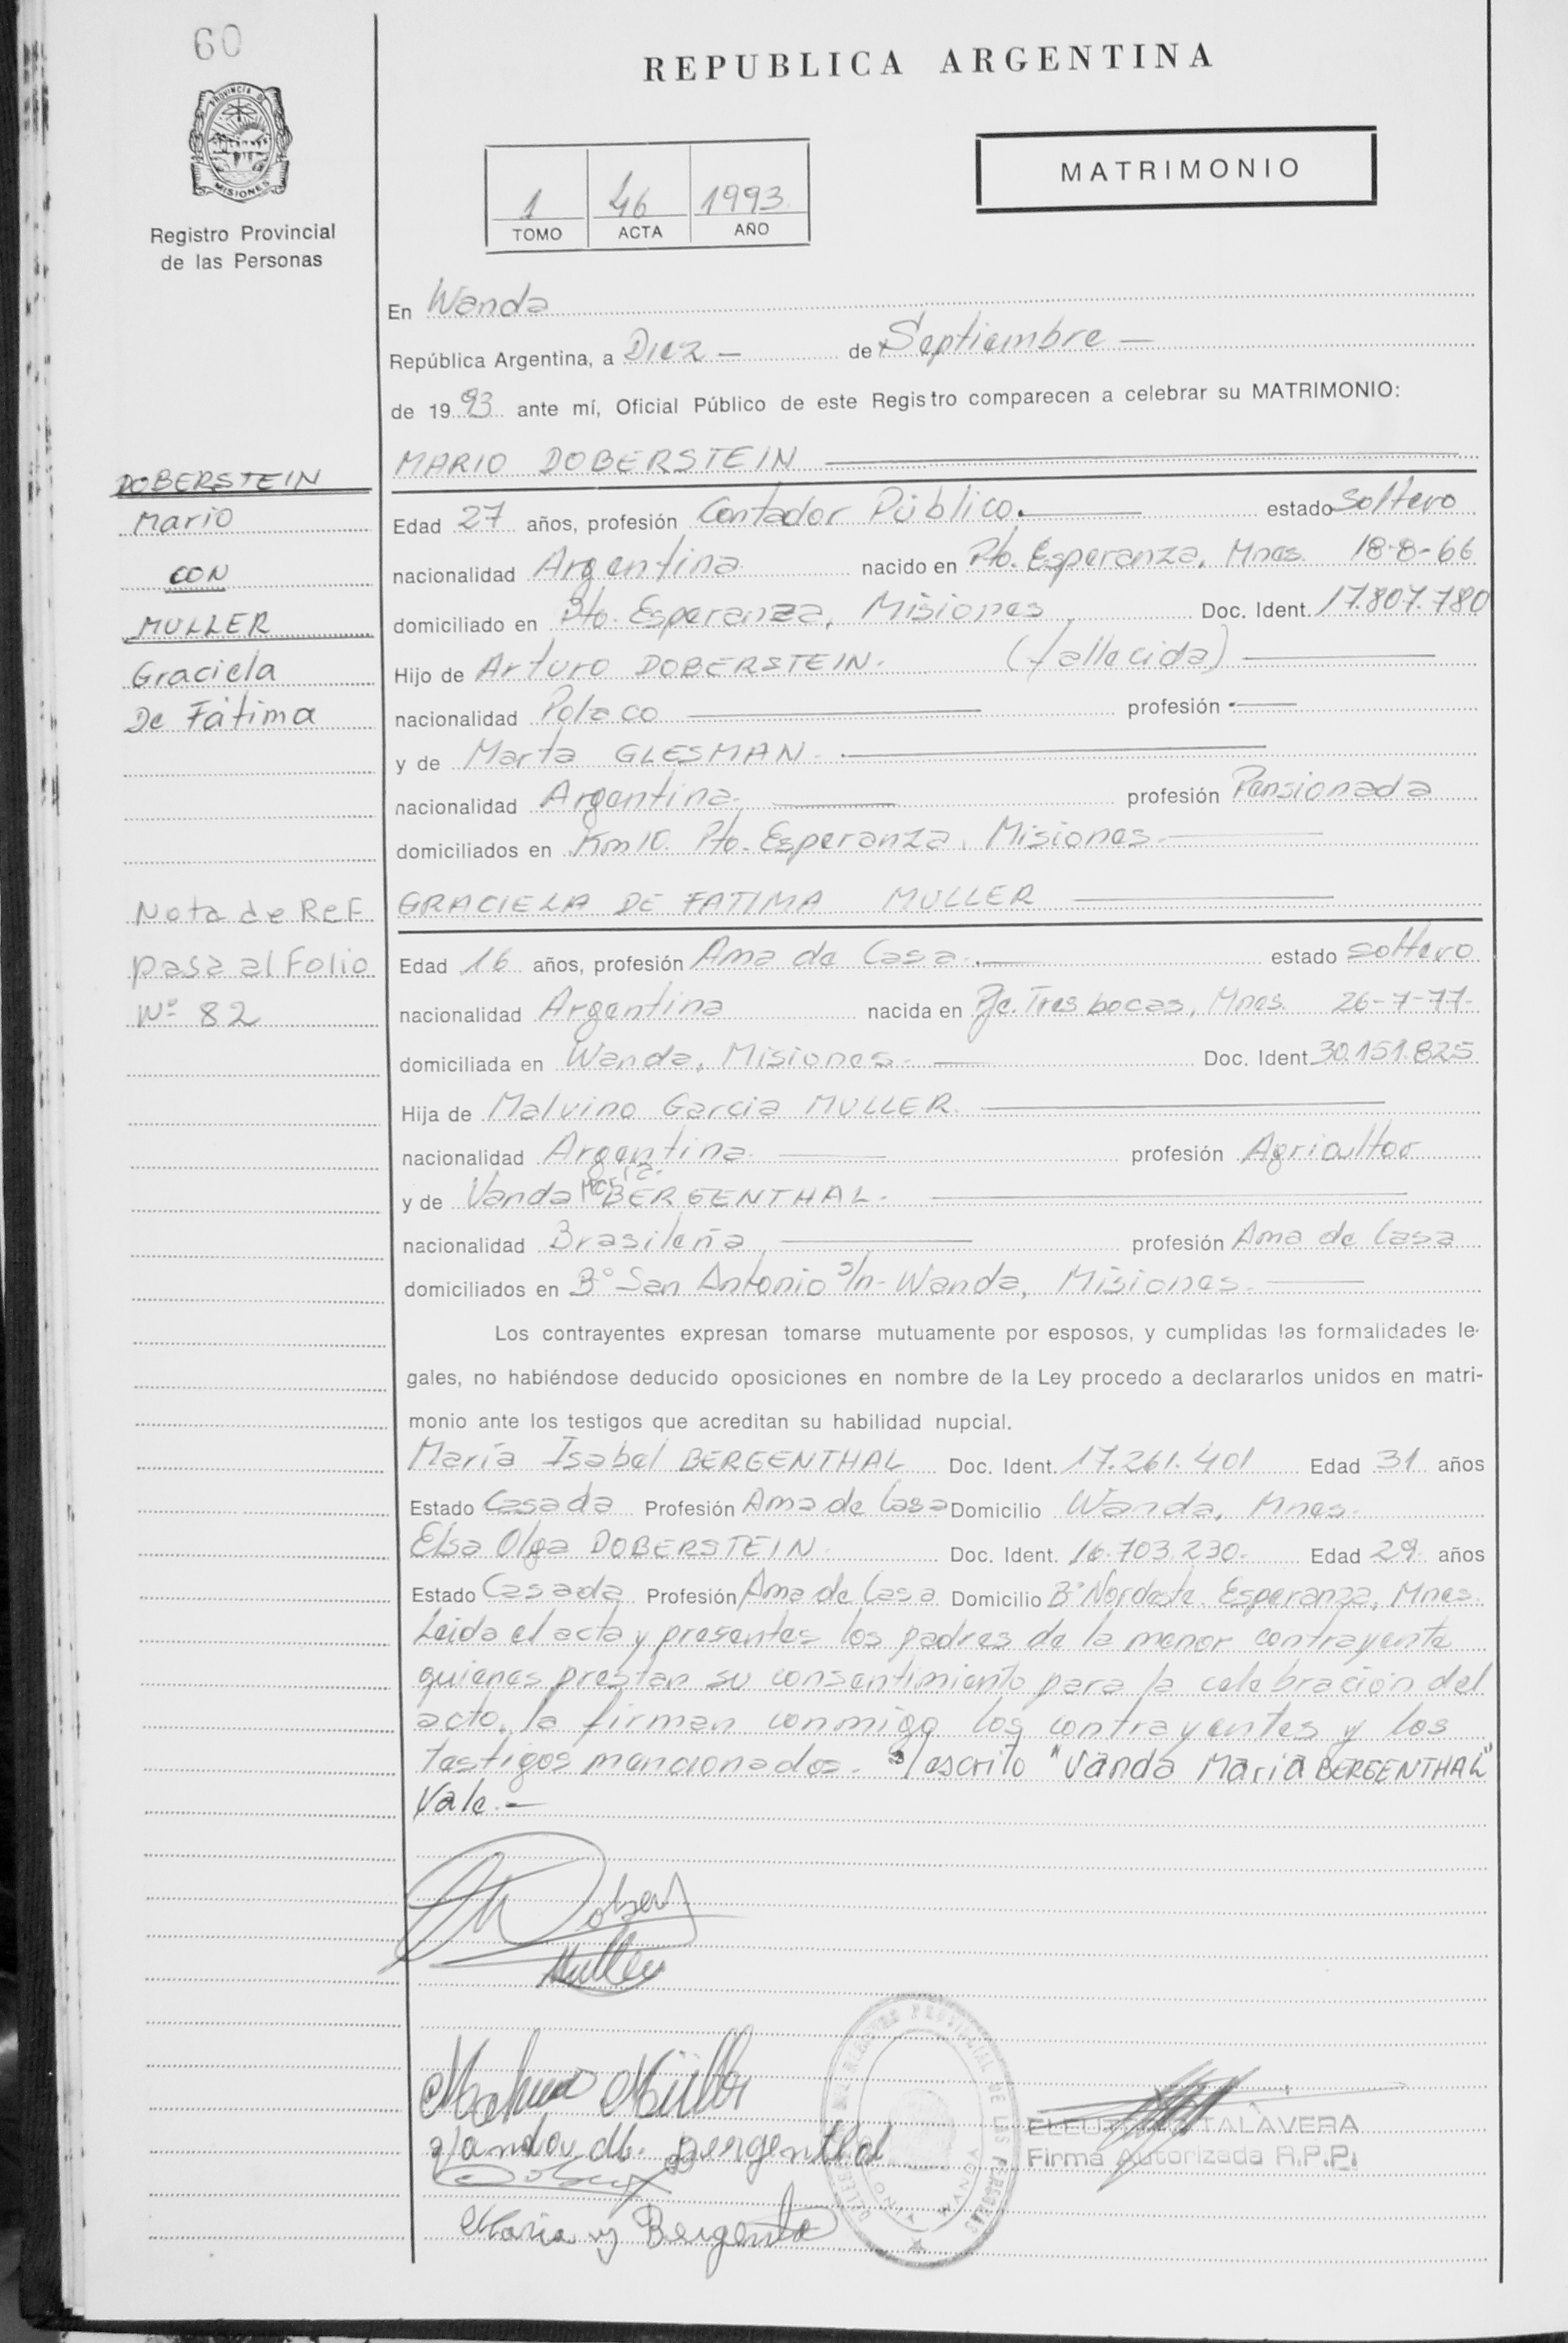 60
REPUBLICA ARGENTINA
PROVINCIA DE
MISIONES
Registro Provincial
de las Personas
1 46 1993
TOMO ACTA AÑO
MATRIMONIO
En Wanda
República Argentina, a Diez — de Septiembre —
de 1993 ante mí, Oficial Público de este Registro comparecen a celebrar su MATRIMONIO:
MARIO DOBERSTEIN
Edad 27 años, profesión Contador Público. estado soltero
nacionalidad Argentina nacido en Pto. Esperanza, Mnes. 18-8-66
domiciliado en Pto. Esperanza, Misiones Doc. Ident. 17.807.780
Hijo de Arturo DOBERSTEIN. (fallecida)
nacionalidad Polaco profesión —
y de Marta GLESMAN
nacionalidad Argentina profesión Pensionada
domiciliados en Km 10. Pto. Esperanza, Misiones.
GRACIELA DE FATIMA MULLER
Edad 16 años, profesión Ama de Casa. estado soltero
nacionalidad Argentina nacida en Pje. Tres bocas, Mnes. 26-7-77-
domiciliada en Wanda, Misiones. Doc. Ident. 30.151.825
Hija de Malvino Garcia MULLER.
nacionalidad Argentina profesión Agricultor
y de Vanda Maria BERGENTHAL.
nacionalidad Brasileña profesión Ama de Casa
domiciliados en B° San Antonio s/n- Wanda, Misiones.
Los contrayentes expresan tomarse mutuamente por esposos, y cumplidas las formalidades le-
gales, no habiéndose deducido oposiciones en nombre de la Ley procedo a declararlos unidos en matri-
monio ante los testigos que acreditan su habilidad nupcial.
María Isabel BERGENTHAL Doc. Ident. 17.261.401 Edad 31 años
Estado Casada Profesión Ama de Casa Domicilio Wanda, Mnes.
Elsa Olga DOBERSTEIN. Doc. Ident. 16.703.230. Edad 29 años
Estado Casada Profesión Ama de Casa Domicilio B° Nordeste. Esperanza, Mnes.
Leida el acta y presentes los padres de la menor contrayente
quienes prestan su consentimiento para la celebración del
acto, la firman conmigo los contrayentes y los
testigos mencionados. s/escrito "Vanda Maria BERGENTHAL"
Vale.—
DOBERSTEIN
Mario
CON
MULLER
Graciela
De Fátima
Nota de Ref
pasa al Folio
N° 82
Muller
Müller
Vanda M. Bergenthal
Maria y
TALAVERA
Firma Autorizada R.P.P.